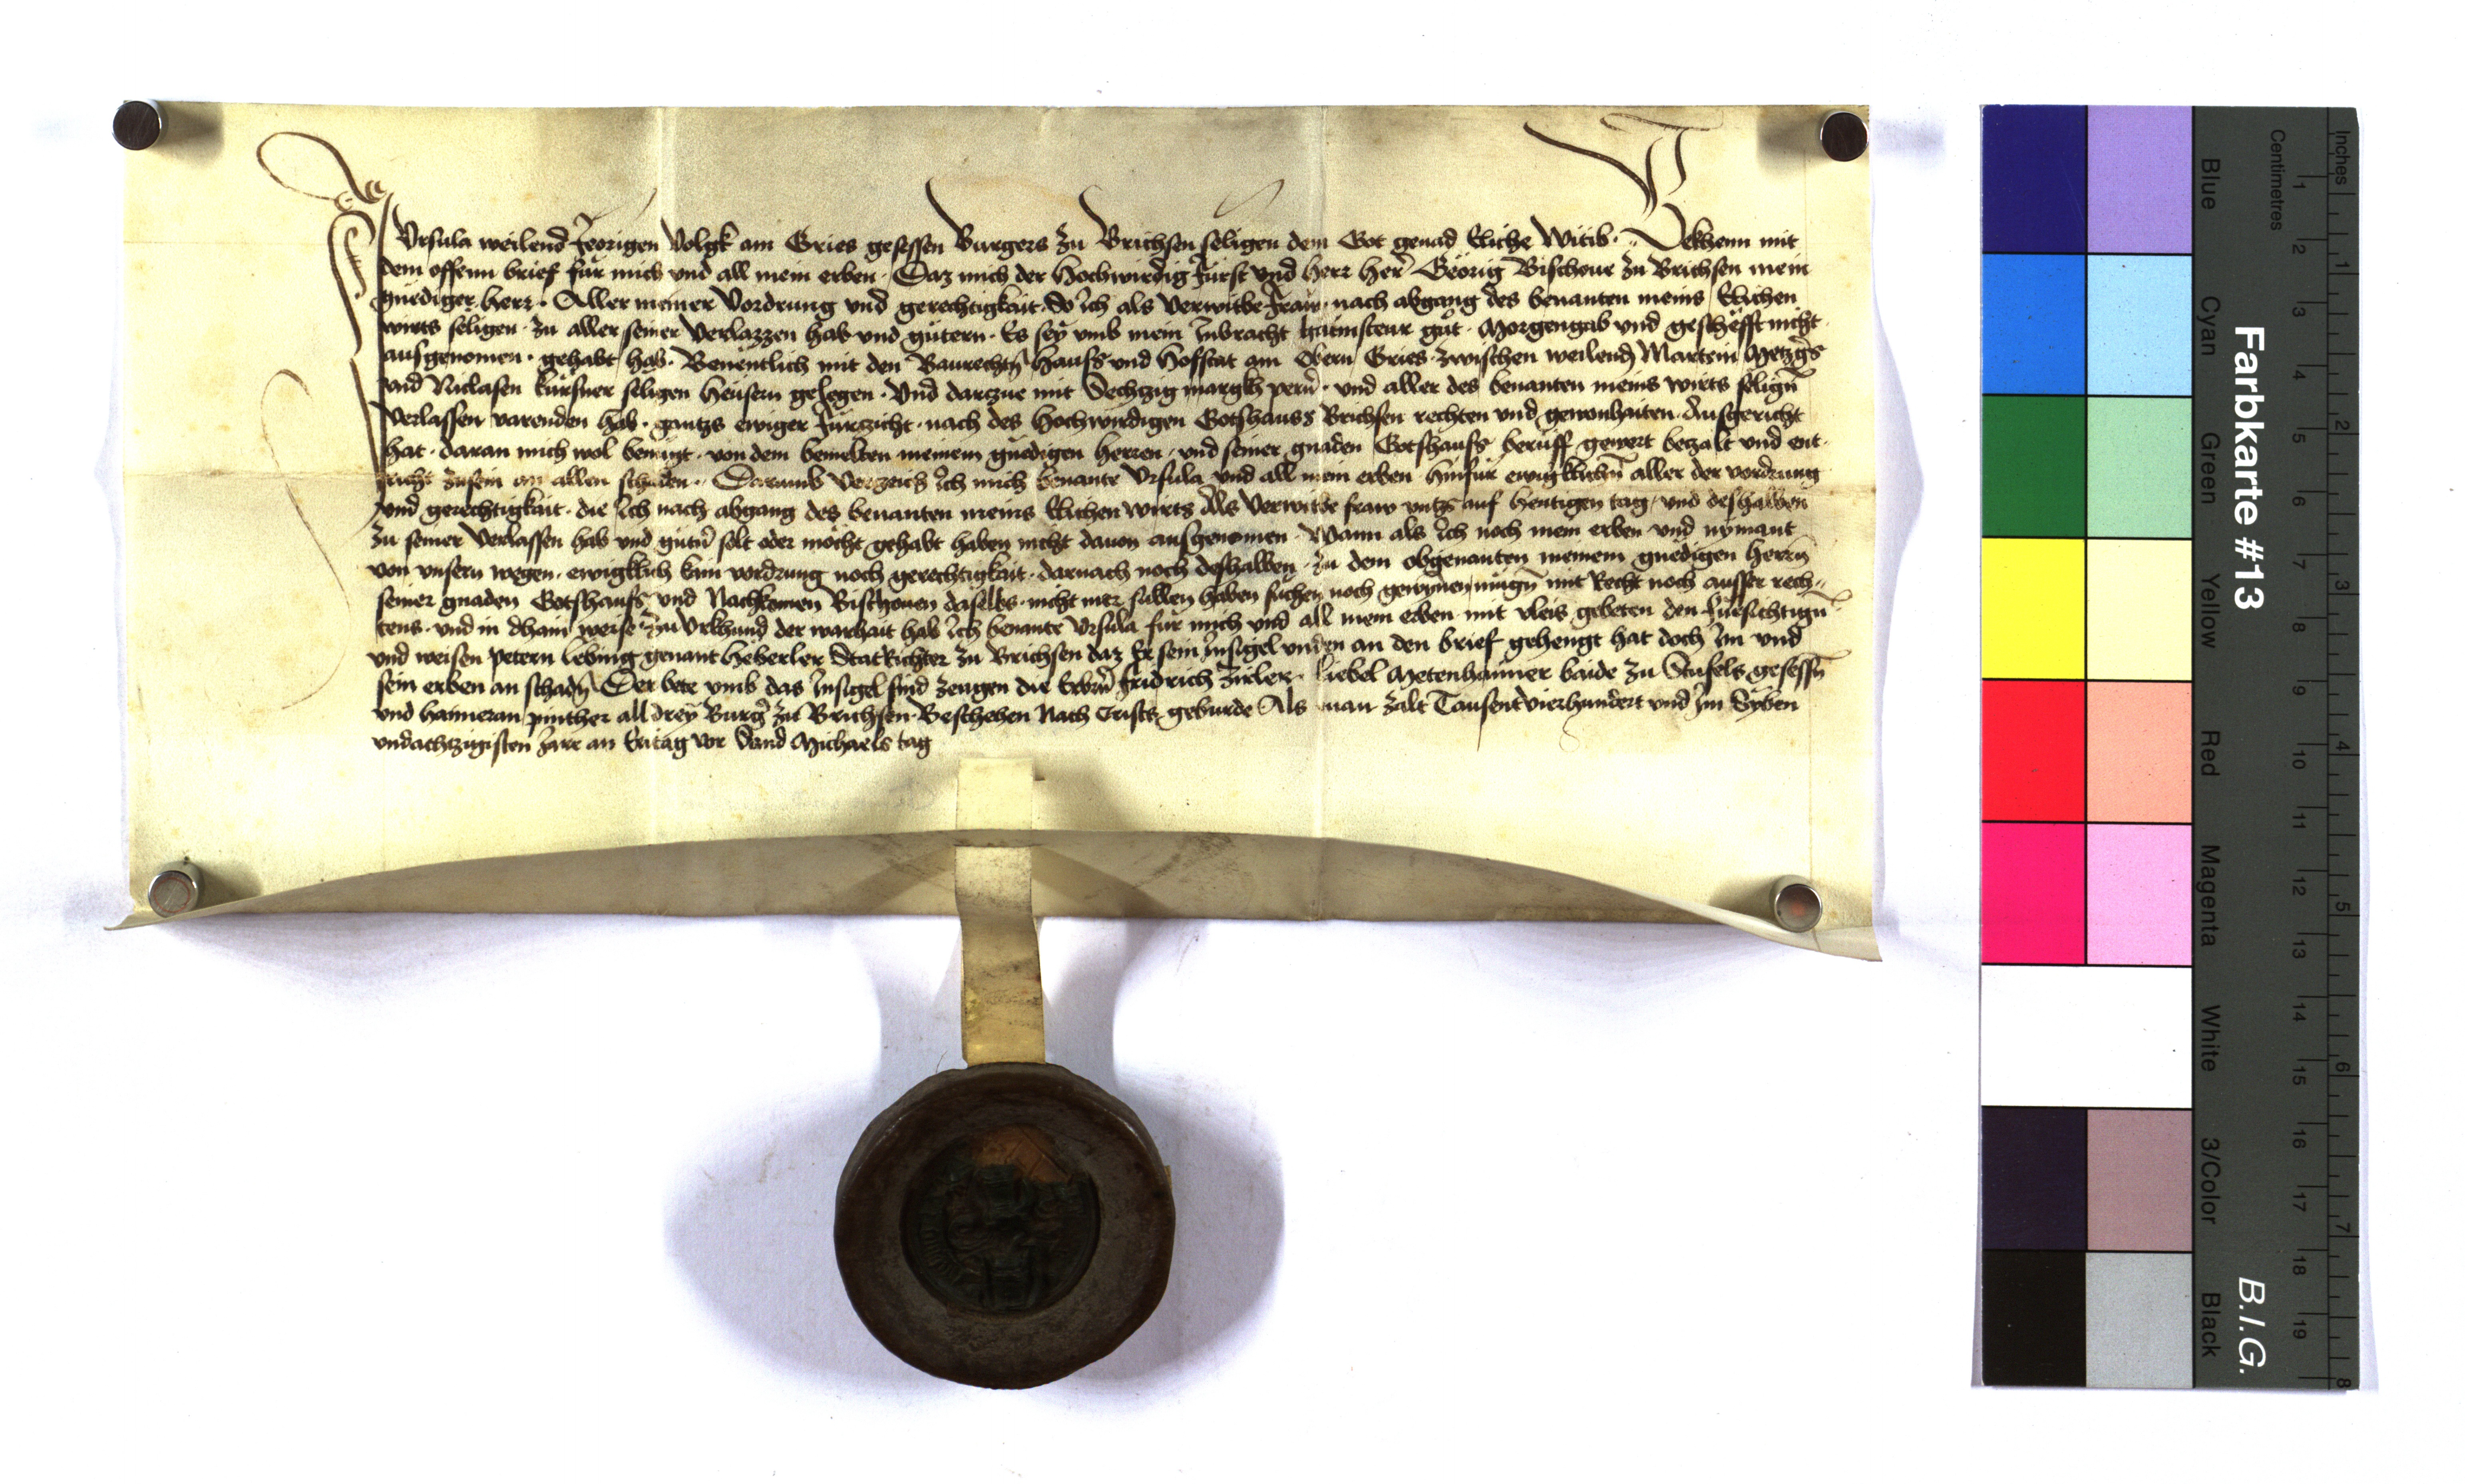 Ich Vrsula weilend Jeorigen Volgk am Gries gesessen Burgers zu Brichsen seligen dem Got genad Eliche Witib. Bekhenn mit
dem offenn brief für mich und all mein erben. Daz mich der Hochwirdig Fürst vnd herr her Georig Bischoue zu Brichsen mein
gnediger herr. Aller meiner Vordrung vnd gerechtigkait. So ich als verwitbe fraw. nach abgang des benanten meins Elichen
wirts seligen. zu aller seiner Verlazzen hab vnd gütern. Es sey vmb mein Inbracht haimsteur güt. Morgengab vnd geschefft nicht
ausgenomen. gehabt hab. Benentlich mit den Baurechtn Hauss vnd Hofstat am Obern Gries. zwischen weilend Martein Metzgers
vnd Niclasen kürsner seligen Heusern gelegen. Vnd darczue mit Sechtzig margkh pern. vnd aller des benanten meins wirts selign
Verlassen varenden hab. gantzs ewiger fürzicht. nach des Hochwirdigen Gotshauss Brichsen rechten vnd gewonhaiten. Ausgericht
hat. daran mich wol benüigt. von dem bemelten meinem gnedigen herren. vnd seiner gnaden Gotshauss beruff gewert bezalt vnd ent-
richt zusein an allen schaden. Darumb Verzeich ich mich benante Vrsula vnd all mein erben. hinfür ewigklichn aller der vordrung
vnd gerechtigkait. die ich nach abgang des benanten meins Elichen wirts Als Verwitbe fraw vntzs auf heutigen tag. vnd deshalben
zu seiner Verlassen hab vnd gütn solt oder möcht gehabt haben nicht dauon ausgenomen. Wann als ich noch mein erben vnd nymant
von vnsern wegen. ewigklich kain vordrung noch gerechtigkait. darnach noch deshalben. zu dem obgenanten meinem gnedigen Herrn
seiner gnaden Gotshauss vnd Nachkomen Bischouen daselbs. nicht mer sullen haben suchen noch gewynen mügn mit Recht noch ausser rech-
tens. vnd in dhain weise Zu Vrkhund der warhait hab ich benante Vrsula für mich vnd all mein erben mit vleis gebeten den fürsichtign
vnd weisen Petern Lebing genant Heberler StatRichter zu Brichsen daz Er sein Insigel vnden an den brief gehengt hat doch im vnd
sein erben an schadn Der bete vmb das Insigel sind zeugen die Erbern fridrich Zirler. Liebel Metenhaimer baide zu Stufels gesessn
vnd haimeran pinther all drey Burger zu Brichsen. Beschehen Nach Crists geburde Als man zalt Tausentvierhundert vnd im Syben
vndachtzigisten Jare an Eritag vor Sand Michaels tag
Farbkarte #13
B.I.G.
Inches 1 2 3 4 5 6 7 8
Centimetres 1 2 3 4 5 6 7 8 9 10 11 12 13 14 15 16 17 18 19
Blue Cyan Green Yellow Red Magenta White 3/Color Black